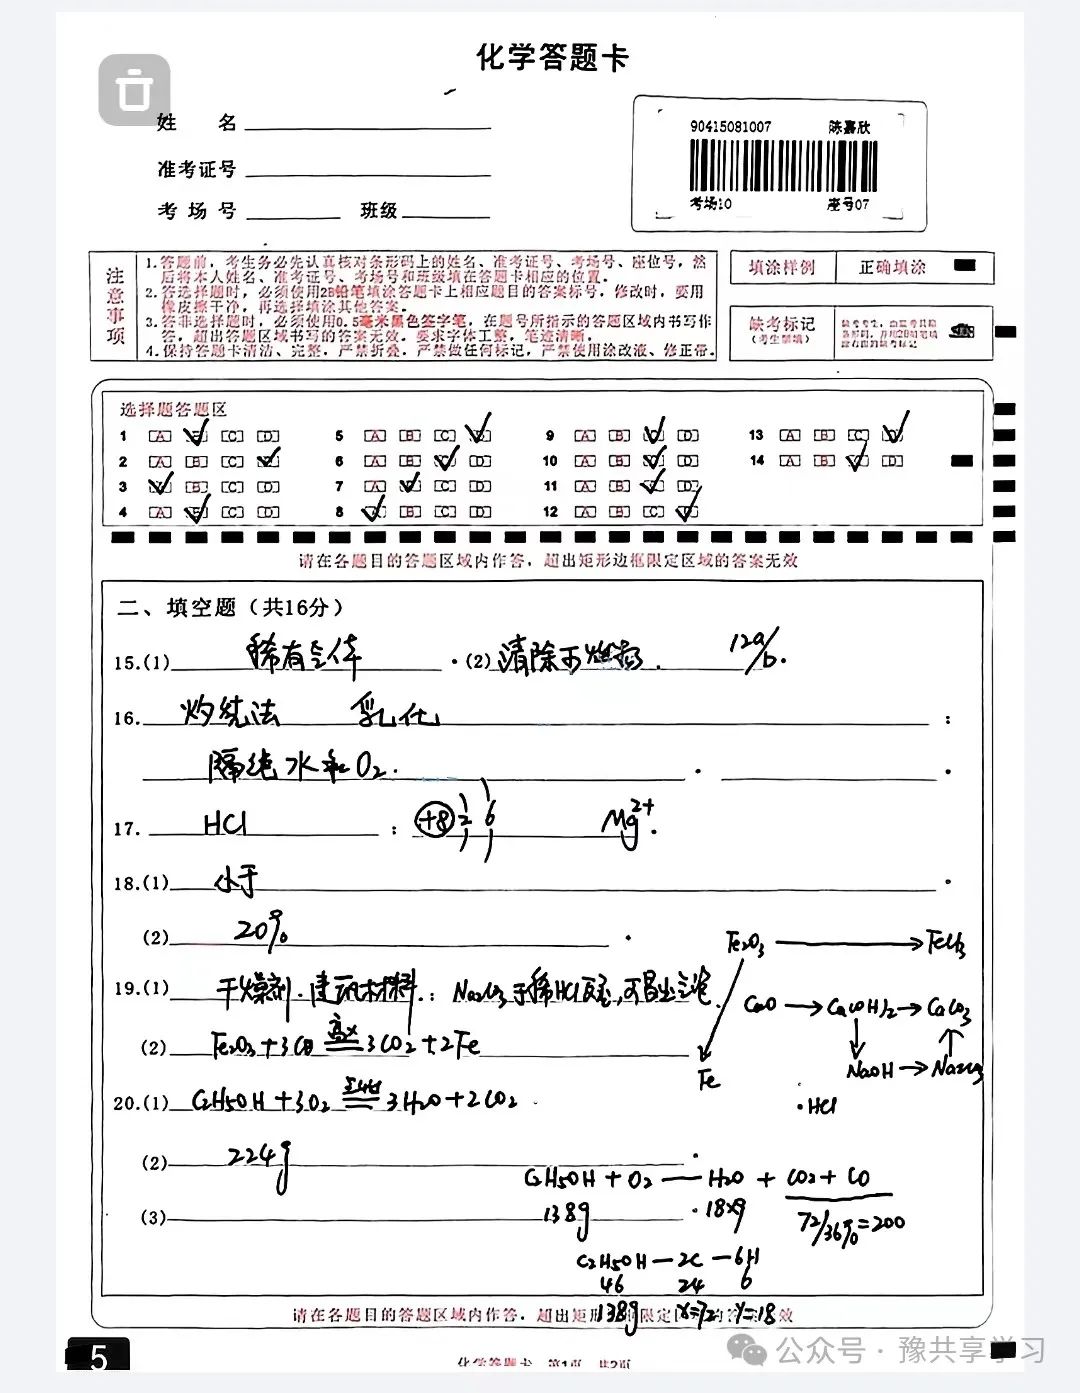 化学答题卡
姓 名
准考证号
考场号 班级
90415081007 陈嘉欣
考场10 座号07
注意事项
1.答题前，考生务必先认真核对条形码上的姓名、准考证号、考场号、座位号，然
后将本人姓名、准考证号、考场号和班级填在答题卡相应的位置。
2.答选择题时，必须使用2B铅笔填涂答题卡上相应题目的答案标号，修改时，要用
橡皮擦干净，再选择填涂其他答案。
3.答非选择题时，必须使用0.5毫米黑色签字笔，在题号所指示的答题区域内书写作
答，超出答题区域书写的答案无效。要求字体工整，笔迹清晰。
4.保持答题卡清洁、完整，严禁折叠，严禁做任何标记，严禁使用涂改液、修正带。
填涂样例 正确填涂
缺考标记
（考生禁填）
选择题答题区
1 [A] [C] [D] 5 [A] [B] [C] 9 [A] [B] [D] 13 [A] [B] [C]
2 [A] [B] [C] 6 [A] [B] [D] 10 [A] [B] [D] 14 [A] [B] [D]
3 [B] [C] [D] 7 [A] [C] [D] 11 [A] [B] [D]
4 [A] [C] [D] 8 [B] [C] [D] 12 [A] [B] [C]
请在各题目的答题区域内作答，超出矩形边框限定区域的答案无效
二、填空题（共16分）
15.(1) 稀有气体 .(2) 清除可燃物. 12a/b.
16. 灼烧法 乳化 ;
隔绝水和O2. . .
17. HCl ; +8 2 6 Mg2+.
18.(1) 小于 .
(2) 20% .
19.(1) 干燥剂.建筑材料.; Na2CO3 于稀HCl反应,可冒出气泡.
(2) Fe2O3+3CO 高温 3CO2+2Fe
Fe2O3 → FeCl3
CaO → Ca(OH)2 → CaCO3
Fe NaOH → Na2CO3
· HCl
20.(1) C2H5OH+3O2 点燃 3H2O+2CO2 .
(2) 224g .
C2H5OH+O2 — H2O + CO2+CO
(3) 138g . 18×9 72/36%=200
C2H5OH — 2C — 6H
46 24 6
138g x=72 y=18
请在各题目的答题区域内作答，超出矩形 限定区 的答案无效
5
化学答题卡 第1页 共2页
公众号·豫共享学习